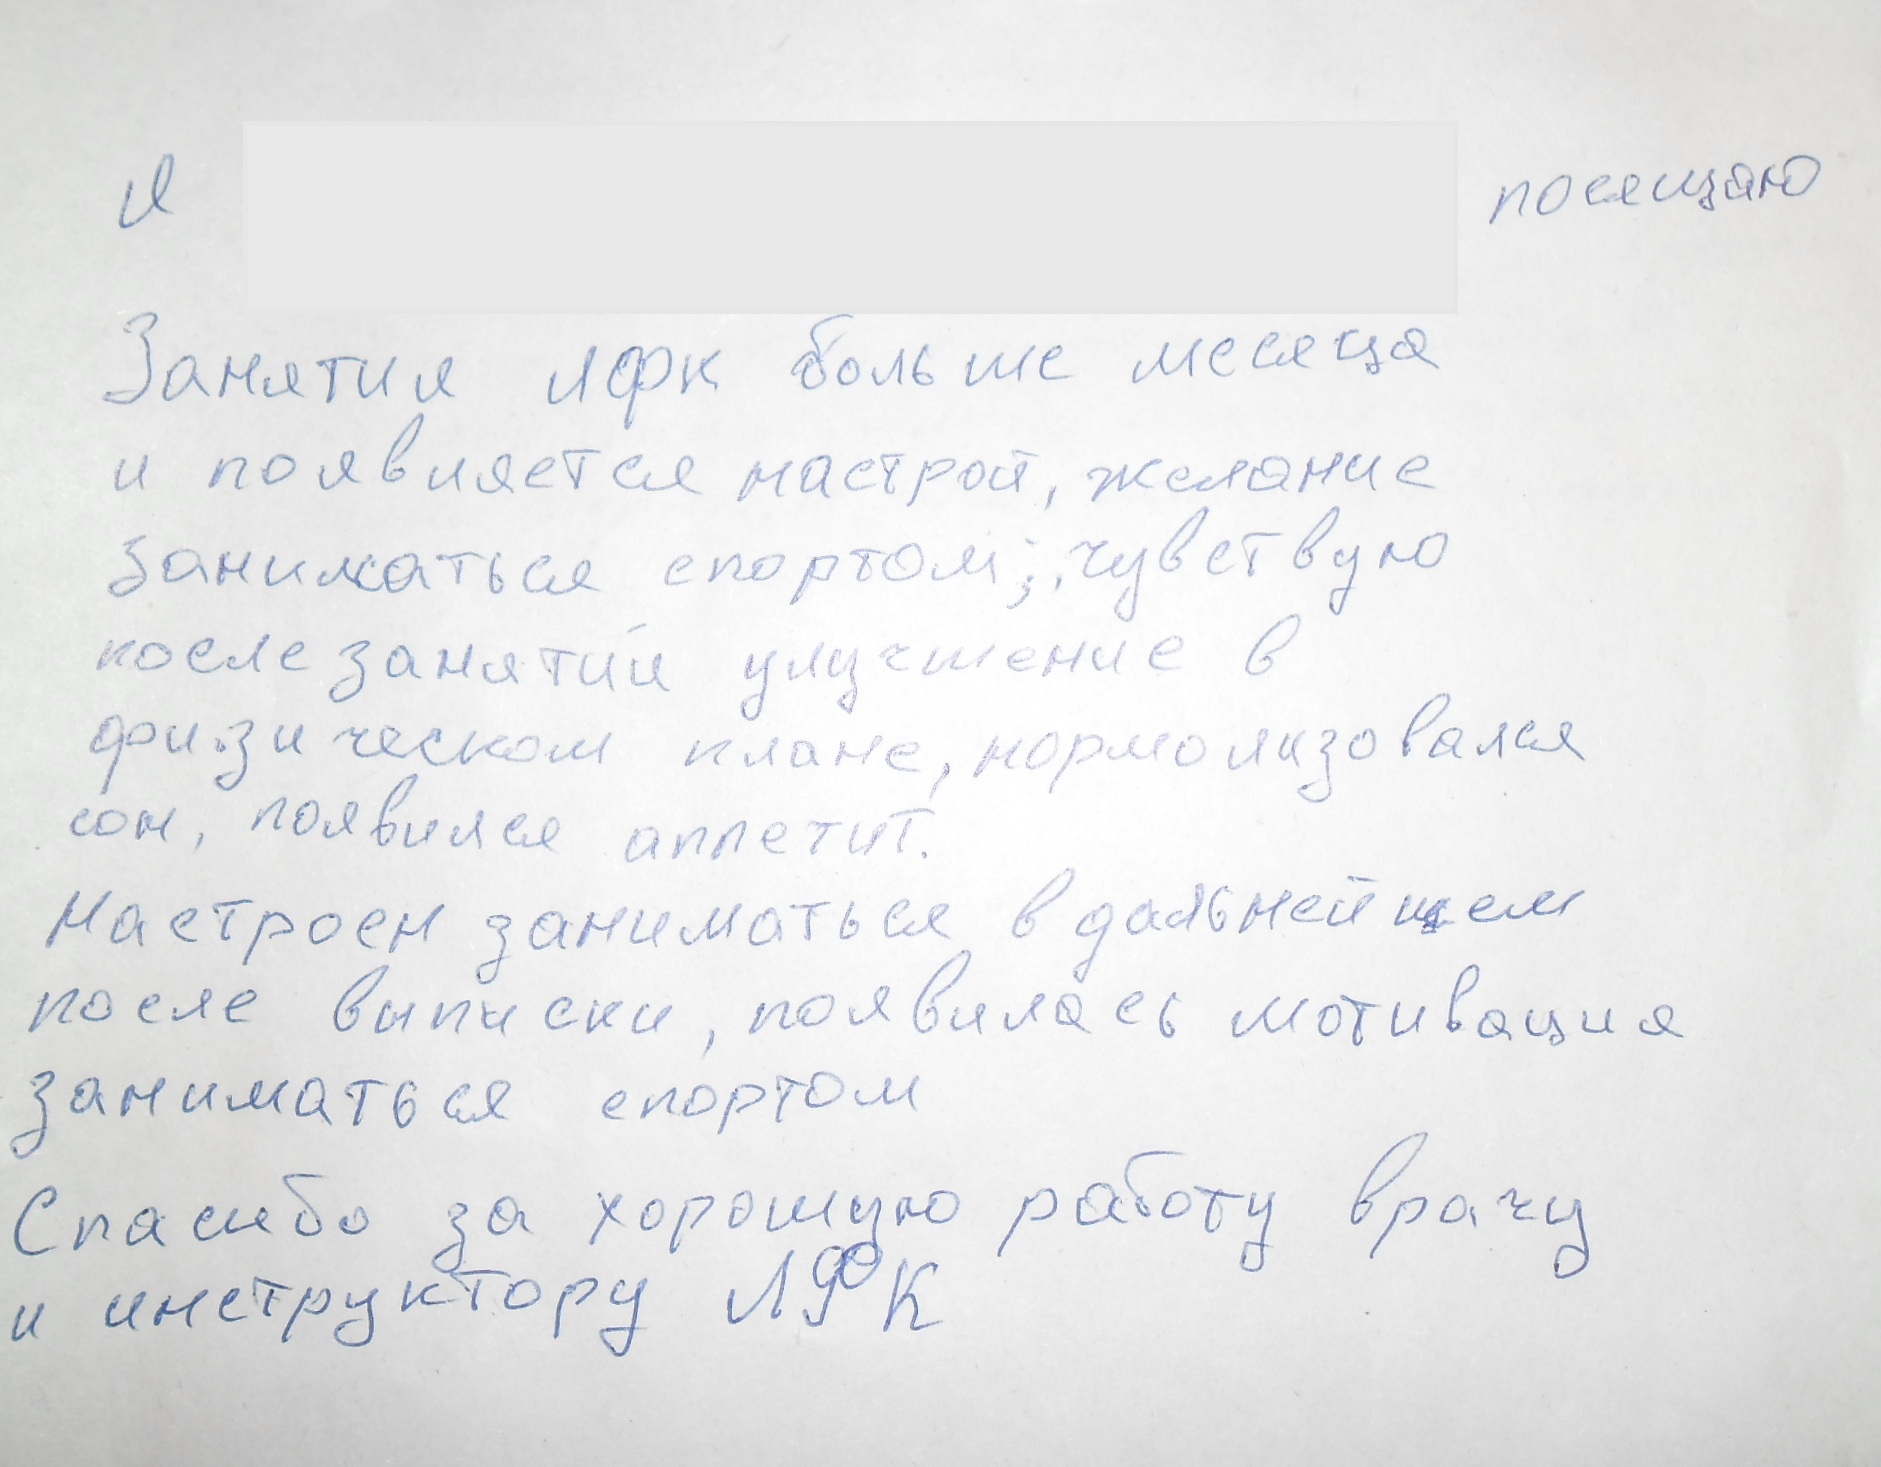 Я посящаю
Занятия ЛФК больше месяца
и появляется настрой, желание
заниматься спортом; чувствую
после занятий улучшение в
физическом плане, нормолизовался
сон, появился аппетит.
Настроен заниматься в дальнейшем
после выписки, появилась мотивация
заниматься спортом
Спасибо за хорошую работу врачу
и инструктору ЛФК